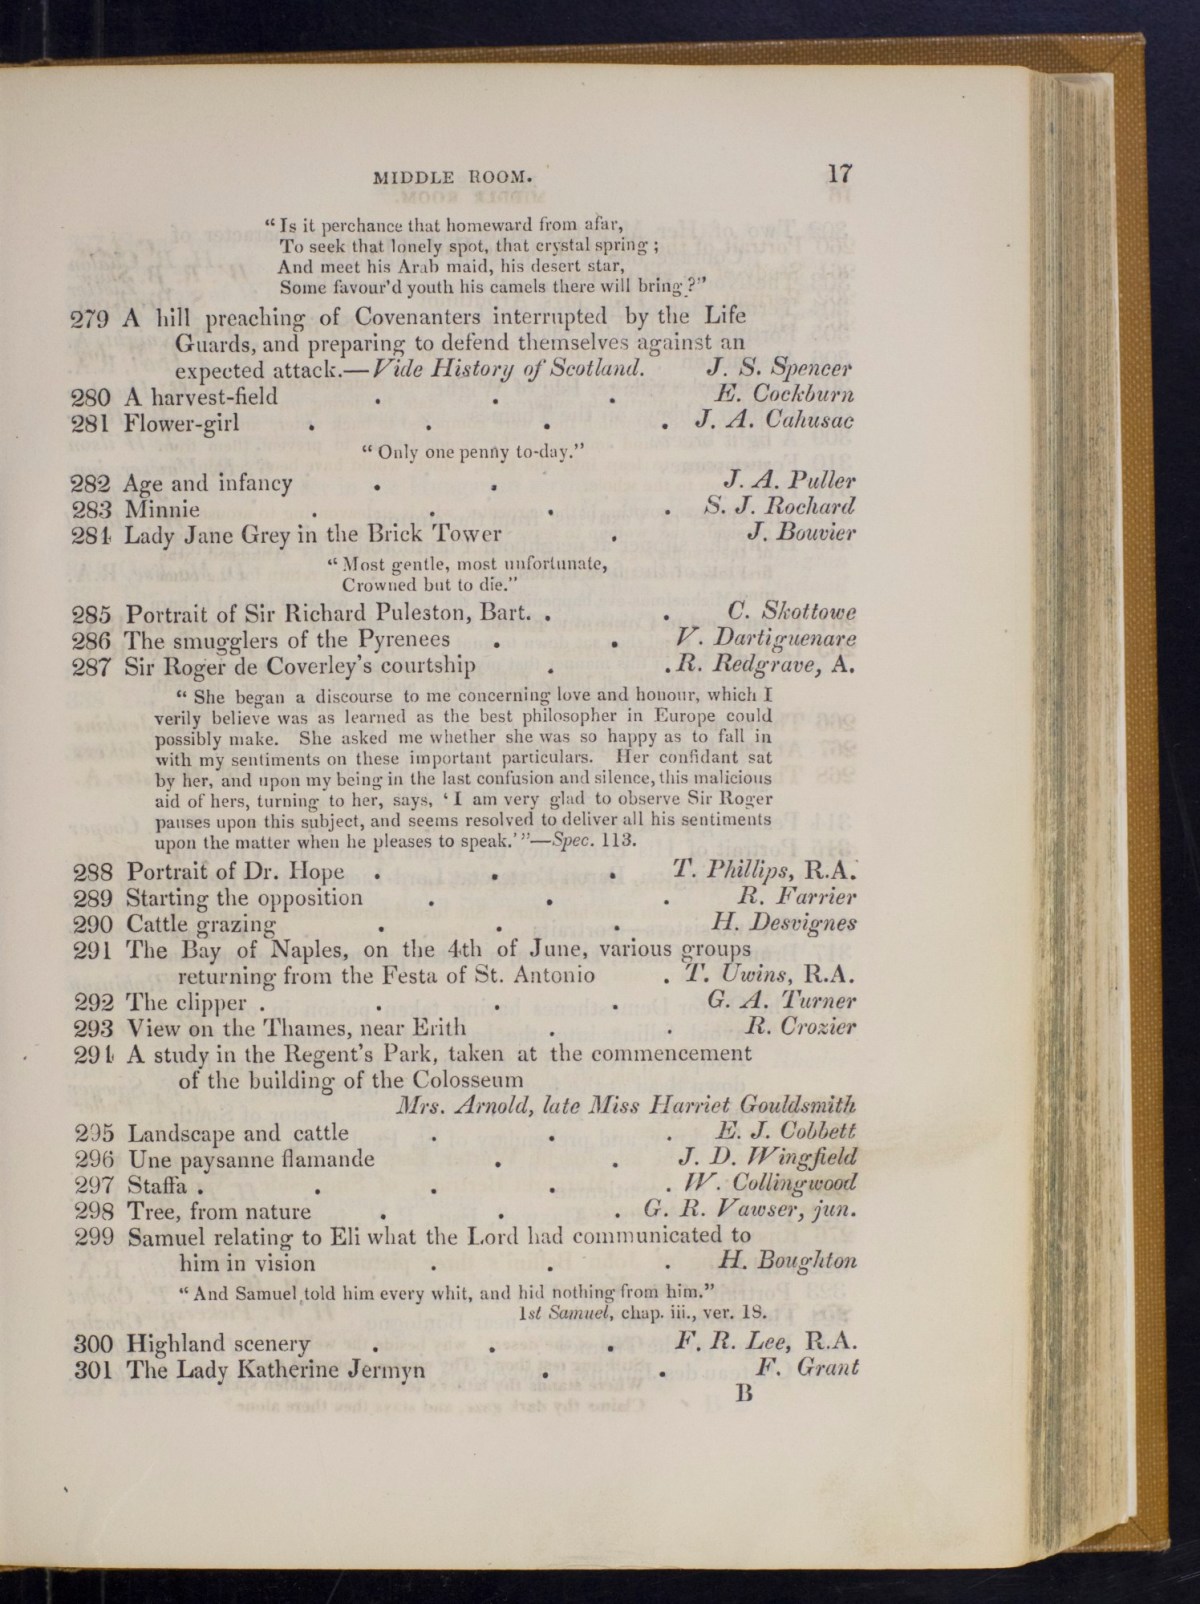 MIDDLE ROOM. 17
“ Is it perchance that homeward from afar,
To seek that lonely spot, that crystal spring ;
And meet his Arab maid, his desert star,
Some favour'd youth his camels there will bring ?”
279 A hill preaching of Covenanters interrupted by the Life
Guards, and preparing to defend themselves against an
expected attack.—Vide History of Scotland. J. S. Spencer
280 A harvest-field . . . E. Cockburn
281 Flower-girl . . . . J. A. Cahusac
“ Only one penny to-day.”
282 Age and infancy . . J. A. Puller
283 Minnie . . . . S. J. Rochard
284 Lady Jane Grey in the Brick Tower . J. Bouvier
“ Most gentle, most unfortunate,
Crowned but to die.”
285 Portrait of Sir Richard Puleston, Bart. . . C. Skottowe
286 The smugglers of the Pyrenees . . V. Dartiguenare
287 Sir Roger de Coverley's courtship . . R. Redgrave, A.
“ She began a discourse to me concerning love and honour, which I
verily believe was as learned as the best philosopher in Europe could
possibly make. She asked me whether she was so happy as to fall in
with my sentiments on these important particulars. Her confidant sat
by her, and upon my being in the last confusion and silence, this malicious
aid of hers, turning to her, says, ‘ I am very glad to observe Sir Roger
pauses upon this subject, and seems resolved to deliver all his sentiments
upon the matter when he pleases to speak.’ ”—Spec. 113.
288 Portrait of Dr. Hope . . . T. Phillips, R.A.
289 Starting the opposition . . . R. Farrier
290 Cattle grazing . . . H. Desvignes
291 The Bay of Naples, on the 4th of June, various groups
returning from the Festa of St. Antonio . T. Uwins, R.A.
292 The clipper . . . . G. A. Turner
293 View on the Thames, near Erith . . R. Crozier
294 A study in the Regent's Park, taken at the commencement
of the building of the Colosseum
Mrs. Arnold, late Miss Harriet Gouldsmith
295 Landscape and cattle . . . E. J. Cobbett
296 Une paysanne flamande . . J. D. Wingfield
297 Staffa . . . . . W. Collingwood
298 Tree, from nature . . . G. R. Vawser, jun.
299 Samuel relating to Eli what the Lord had communicated to
him in vision . . . H. Boughton
“ And Samuel told him every whit, and hid nothing from him.”
1st Samuel, chap. iii., ver. 18.
300 Highland scenery . . . F. R. Lee, R.A.
301 The Lady Katherine Jermyn . . F. Grant
B